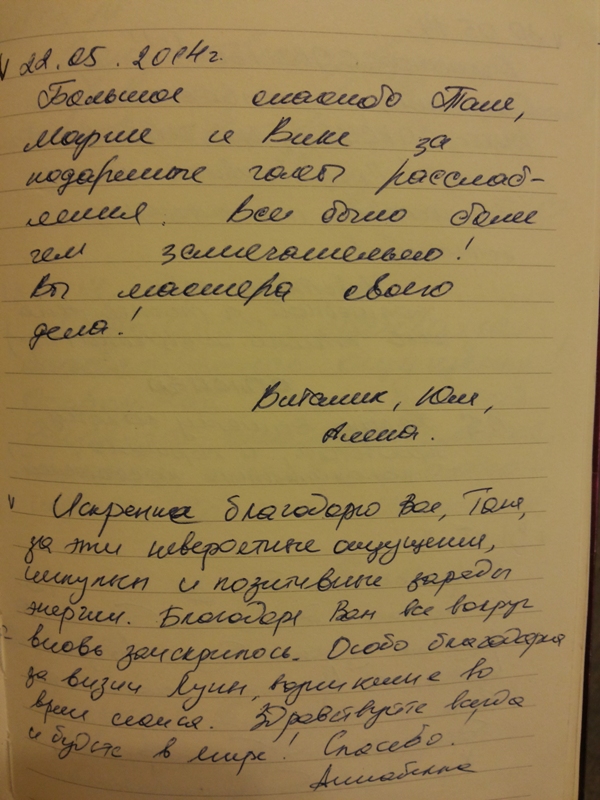 22.05.2014г.
Большое спасибо Тане,
Марине и Вике за
подаренные часы расслаб-
ления. Все было более
чем замечательно!
Вы мастера своего
дела!
Виталик, Юля,
Алена.
Искренне благодарю Вас, Таня,
за эти невероятные ощущения,
импульсы и позитивные заряды
энергии. Благодаря Вам все вокруг
вновь заискрилось. Особо благодарна
за визии Луны, возникшие во
время сеанса. Здравствуйте всегда
и будьте в мире! Спасибо.